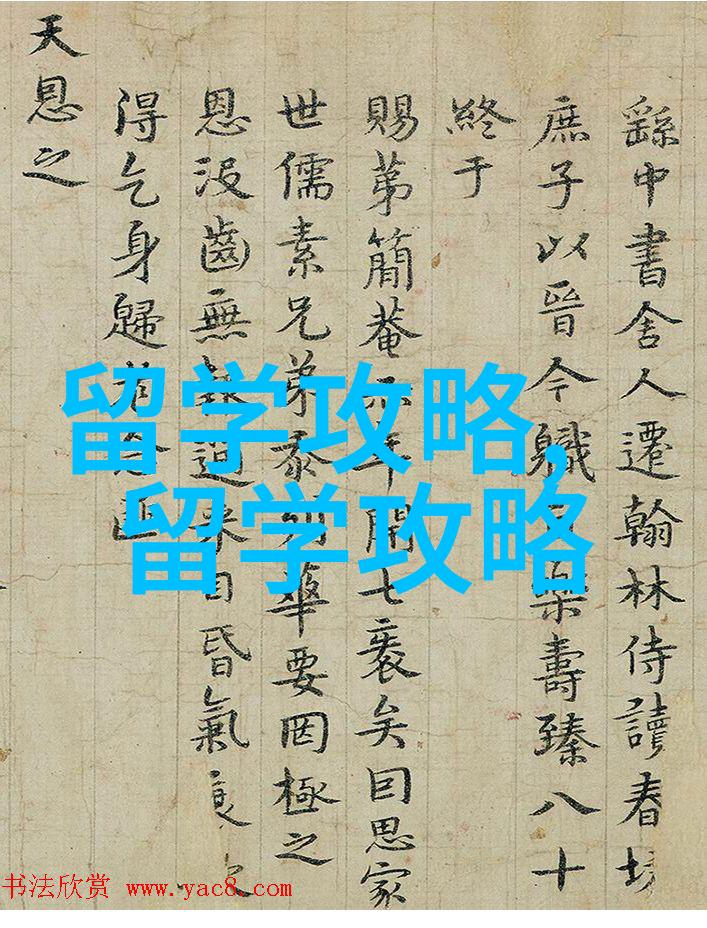 繇中書舍人遷翰林侍讀春坊
庶子以晉今軄樂壽臻八十
終于
賜第簡菴年開七袠矣囙思家
世儒素兄弟忝列華要罔極之
恩没齒無來目昏氣
得乞身歸
天恩之
留学攻略,
留学攻略
书法欣赏 www.yac8.com